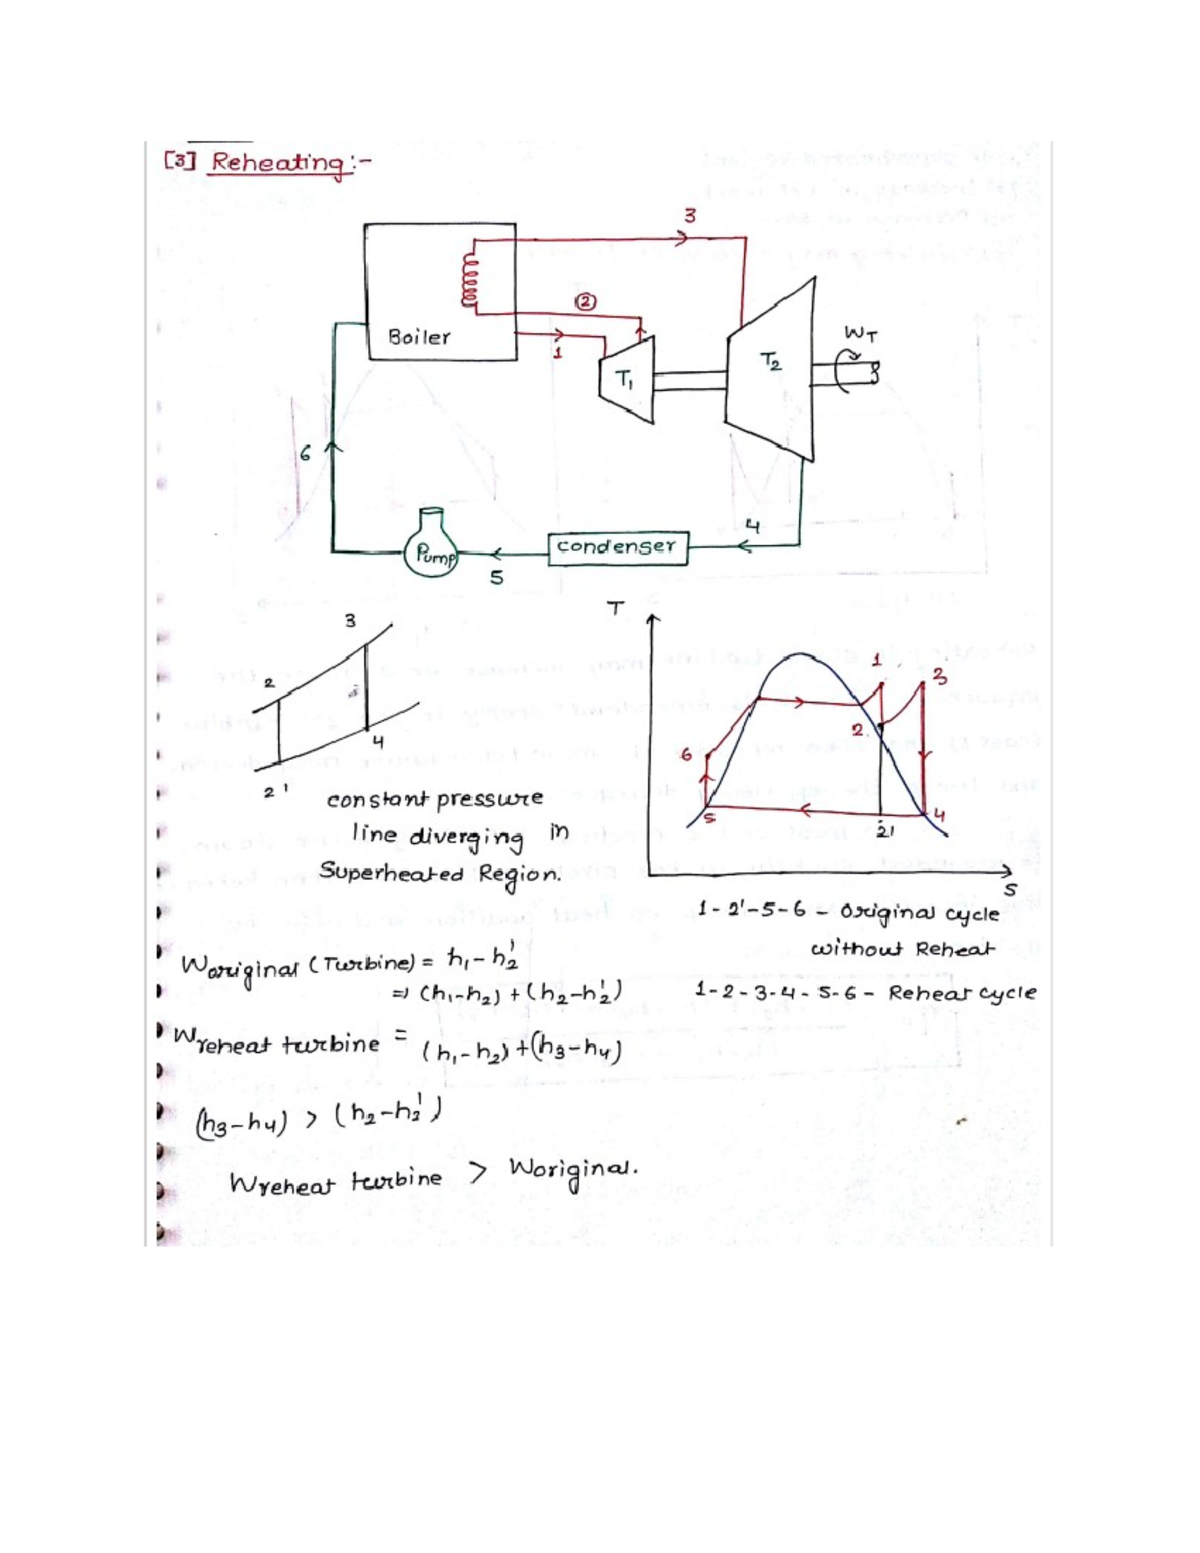 [3] Reheating:-
3
Boiler
②
1
T1
T2
WT
6
Pump
5
condenser
4
3
2
4
2'
constant pressure
line diverging in
Superheated Region.
T
1
3
2
6
5
4
2'
S
1-2'-5-6 - Original cycle
without Reheat
1-2-3-4-5-6 - Reheat cycle
Woriginal (Turbine) = h1-h2'
=> (h1-h2) + (h2-h2')
Wreheat turbine = (h1-h2) + (h3-h4)
(h3-h4) > (h2-h2')
Wreheat turbine > Woriginal.